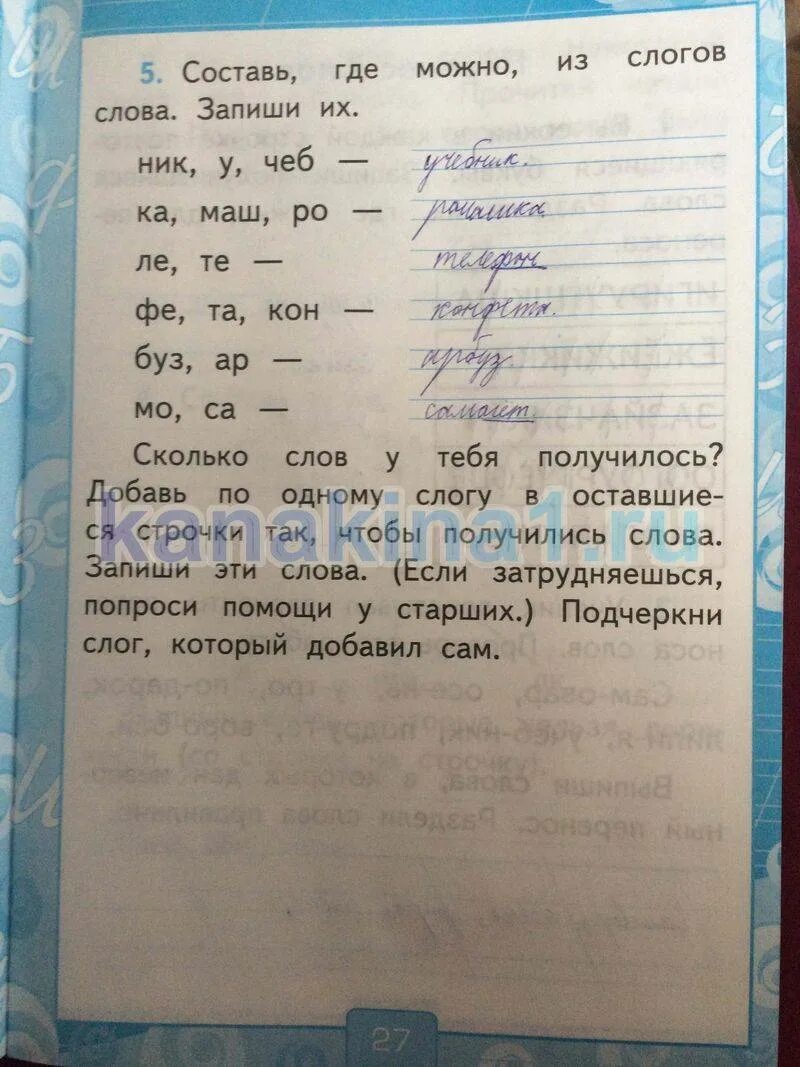 5. Составь, где можно, из слогов
слова. Запиши их.
ник, у, чеб — учебник.
ка, маш, ро — ромашка
ле, те — телефон
фе, та, кон — конфета.
буз, ар — арбуз.
мо, са — самолет.
Сколько слов у тебя получилось?
Добавь по одному слогу в оставшие-
ся строчки так, чтобы получились слова.
kanakina1.ru
Запиши эти слова. (Если затрудняешься,
попроси помощи у старших.) Подчеркни
слог, который добавил сам.
27